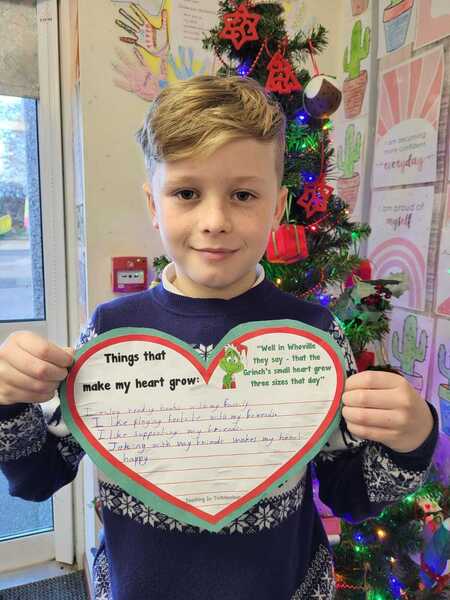 I am becoming
more confident
everyday
I am proud
of
myself
Things that
make my heart grow:
"Well in Whoville
they say - that the
Grinch's small heart grew
three sizes that day"
I enjoy reading books with my family
I like playing football with my friends
I like supporting my friends
Joking with my friends makes my heart
happy
Teaching In